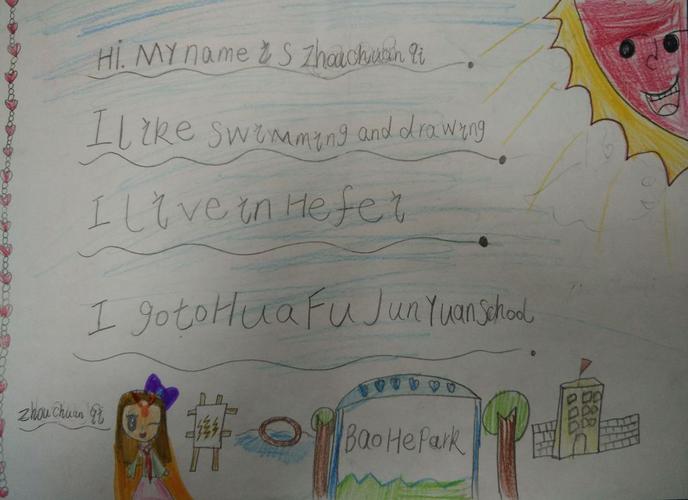 Hi. My name is Zhouchuan qi
I like swimming and drawing
I live in Hefei
I go to HuaFu JunYuan School
zhou chuan qi
BaoHePark